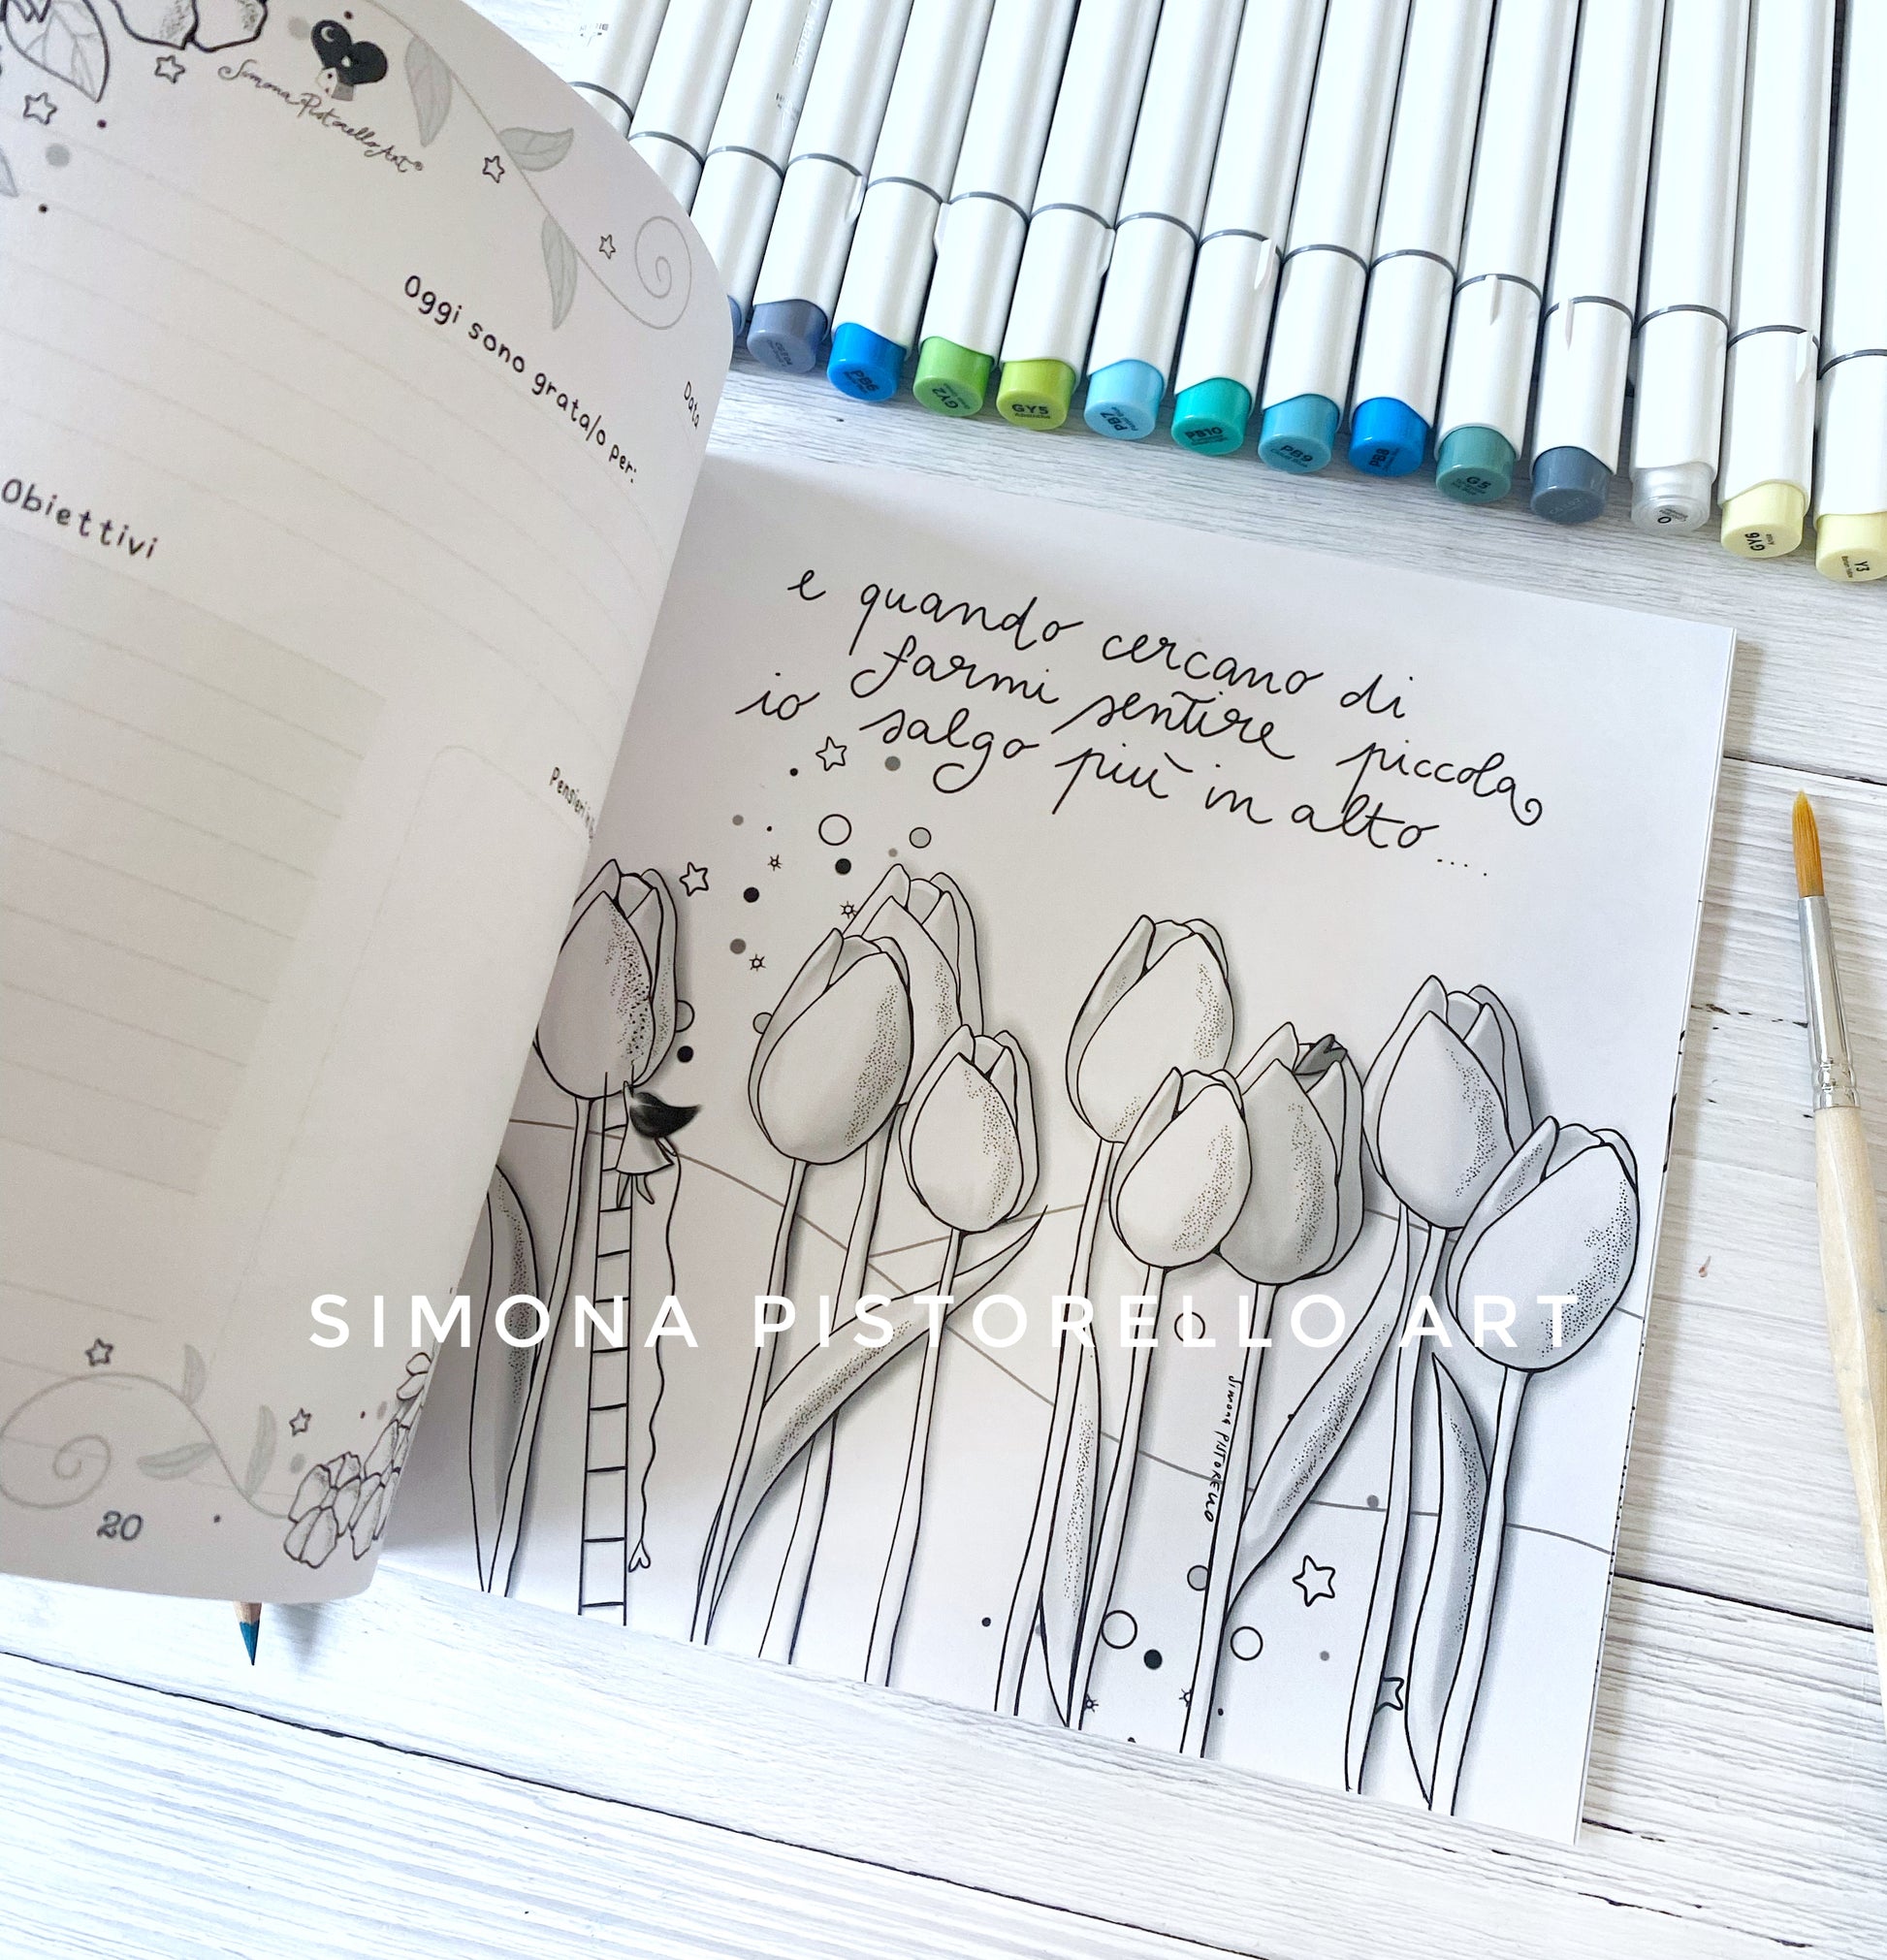 Simona Pistorello Art®
Data
Oggi sono grata/o per:
Obiettivi
Pensieri
20
e quando cercano di
farmi sentire piccola
io salgo più in alto....
Simona PISTORELLO
SIMONA PISTORELLO ART
PB6
GY2
GY5
PB7
PB10
PB9
PB8
G5
0
GY6
Y3